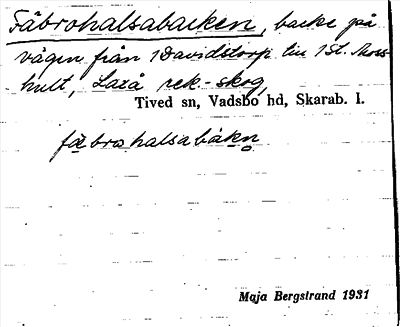 Fäbrohalsabacken, backe på
vägen från 1 Davidstorp till 1 St. Moss
hult, Laxå rek-skog,
Tived sn, Vadsbo hd, Skarab. l.
fäbrohalsabàkn̥
Maja Bergstrand 1931